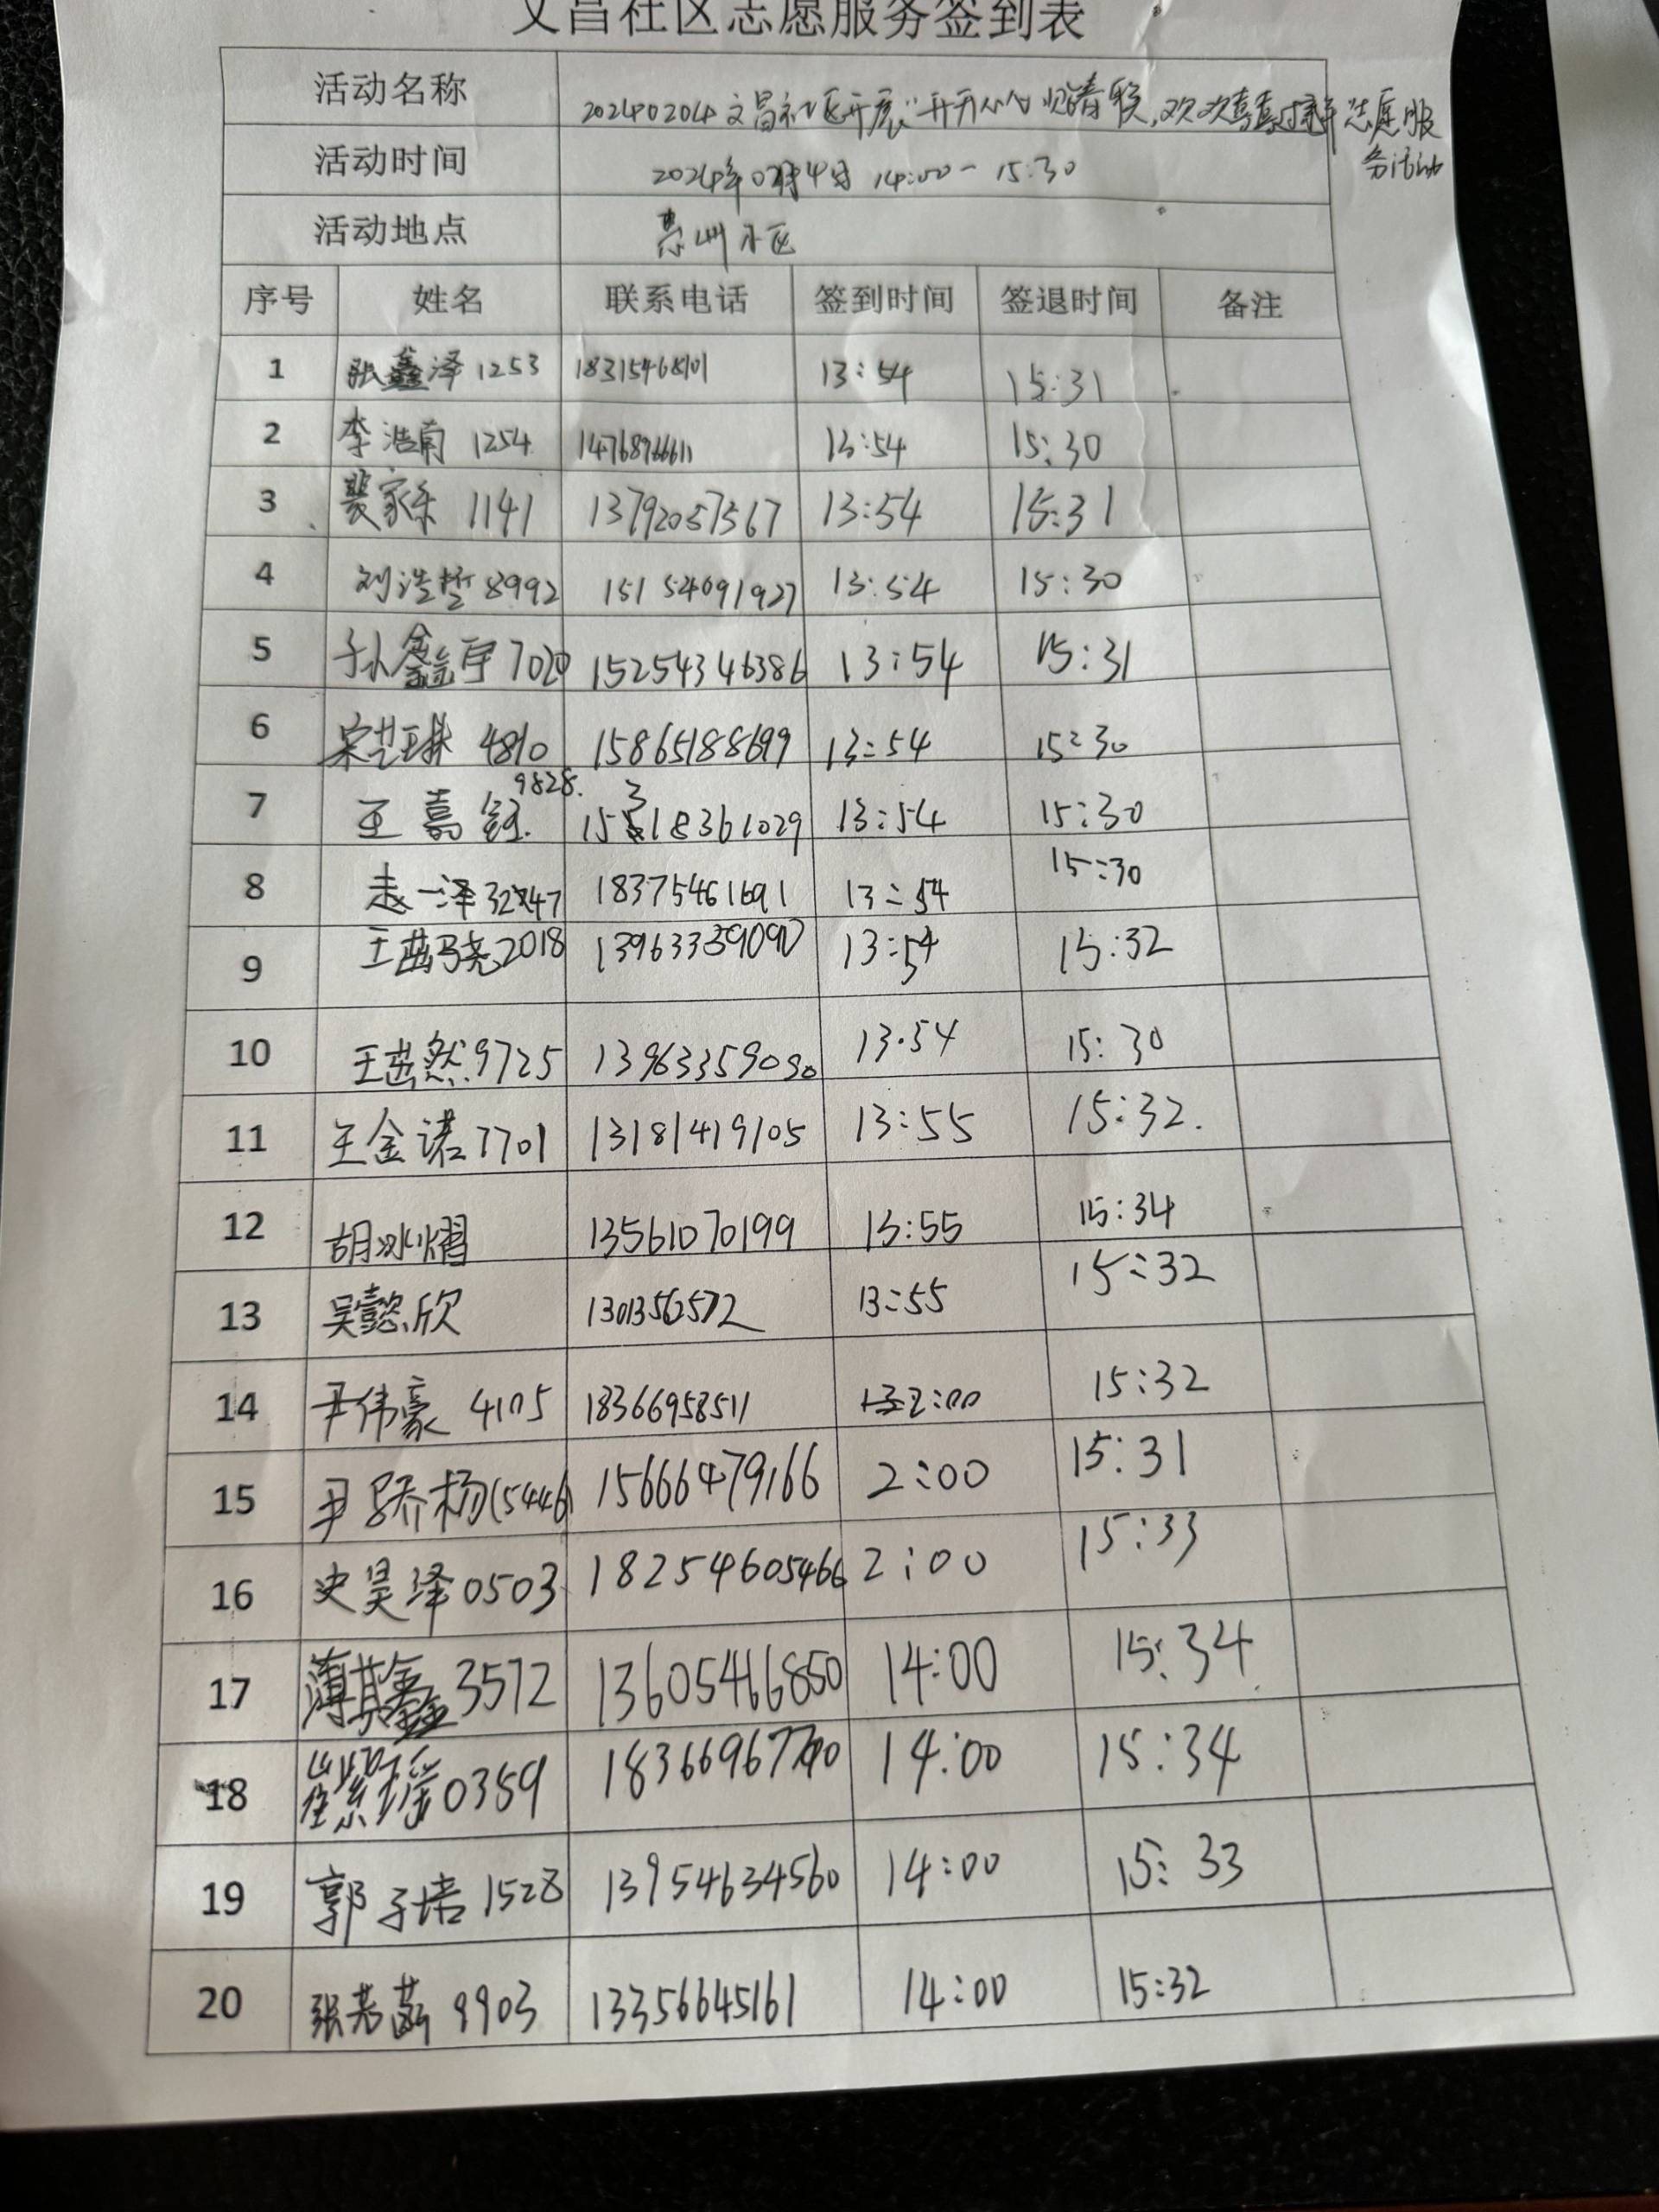 文昌社区志愿服务签到表
活动名称 20240204文昌社区开展"开开心心 欢欢喜喜 志愿服
务活动
活动时间 2024年02月4日 14:00-15:30
活动地点 惠州小区
序号 姓名 联系电话 签到时间 签退时间 备注
1 张鑫泽 1253 13:54 15:31
2 李浩南 1254 14768966611 13:54 15:30
3 裴家乐 1141 13792057567 13:54 15:31
4 刘浩哲 8992 15154091927 13:54 15:30
5 孙鑫宇 15254346386 13:54 15:31
6 宋艺琳 15865188699 13:54 15:30
7 王嘉钰 9828. 15318361029 13:54 15:30
8 一泽 18375461691 13:54 15:30
9 王茁骁 2018 13:54 15:32
10 王茁然 9725 13963359090 13.54 15:30
11 王金诺 7701 13181419105 13:55 15:32.
12 胡冰熠 13561070199 13:55 15:34
13 吴懿欣 13:55 15:32
14 尹伟豪 4105 18366958511 2:00 15:32
15 尹骄杨(5446) 15666479166 2:00 15:31
16 史昊泽 0503 18254605466 2:00 15:33
17 薄其鑫 3572 13605466850 14:00 15:34
18 崔紫瑶 0359 14:00 15:34
19 郭子培 1528 13954634560 14:00 15:33
20 张 9903 13356645161 14:00 15:32